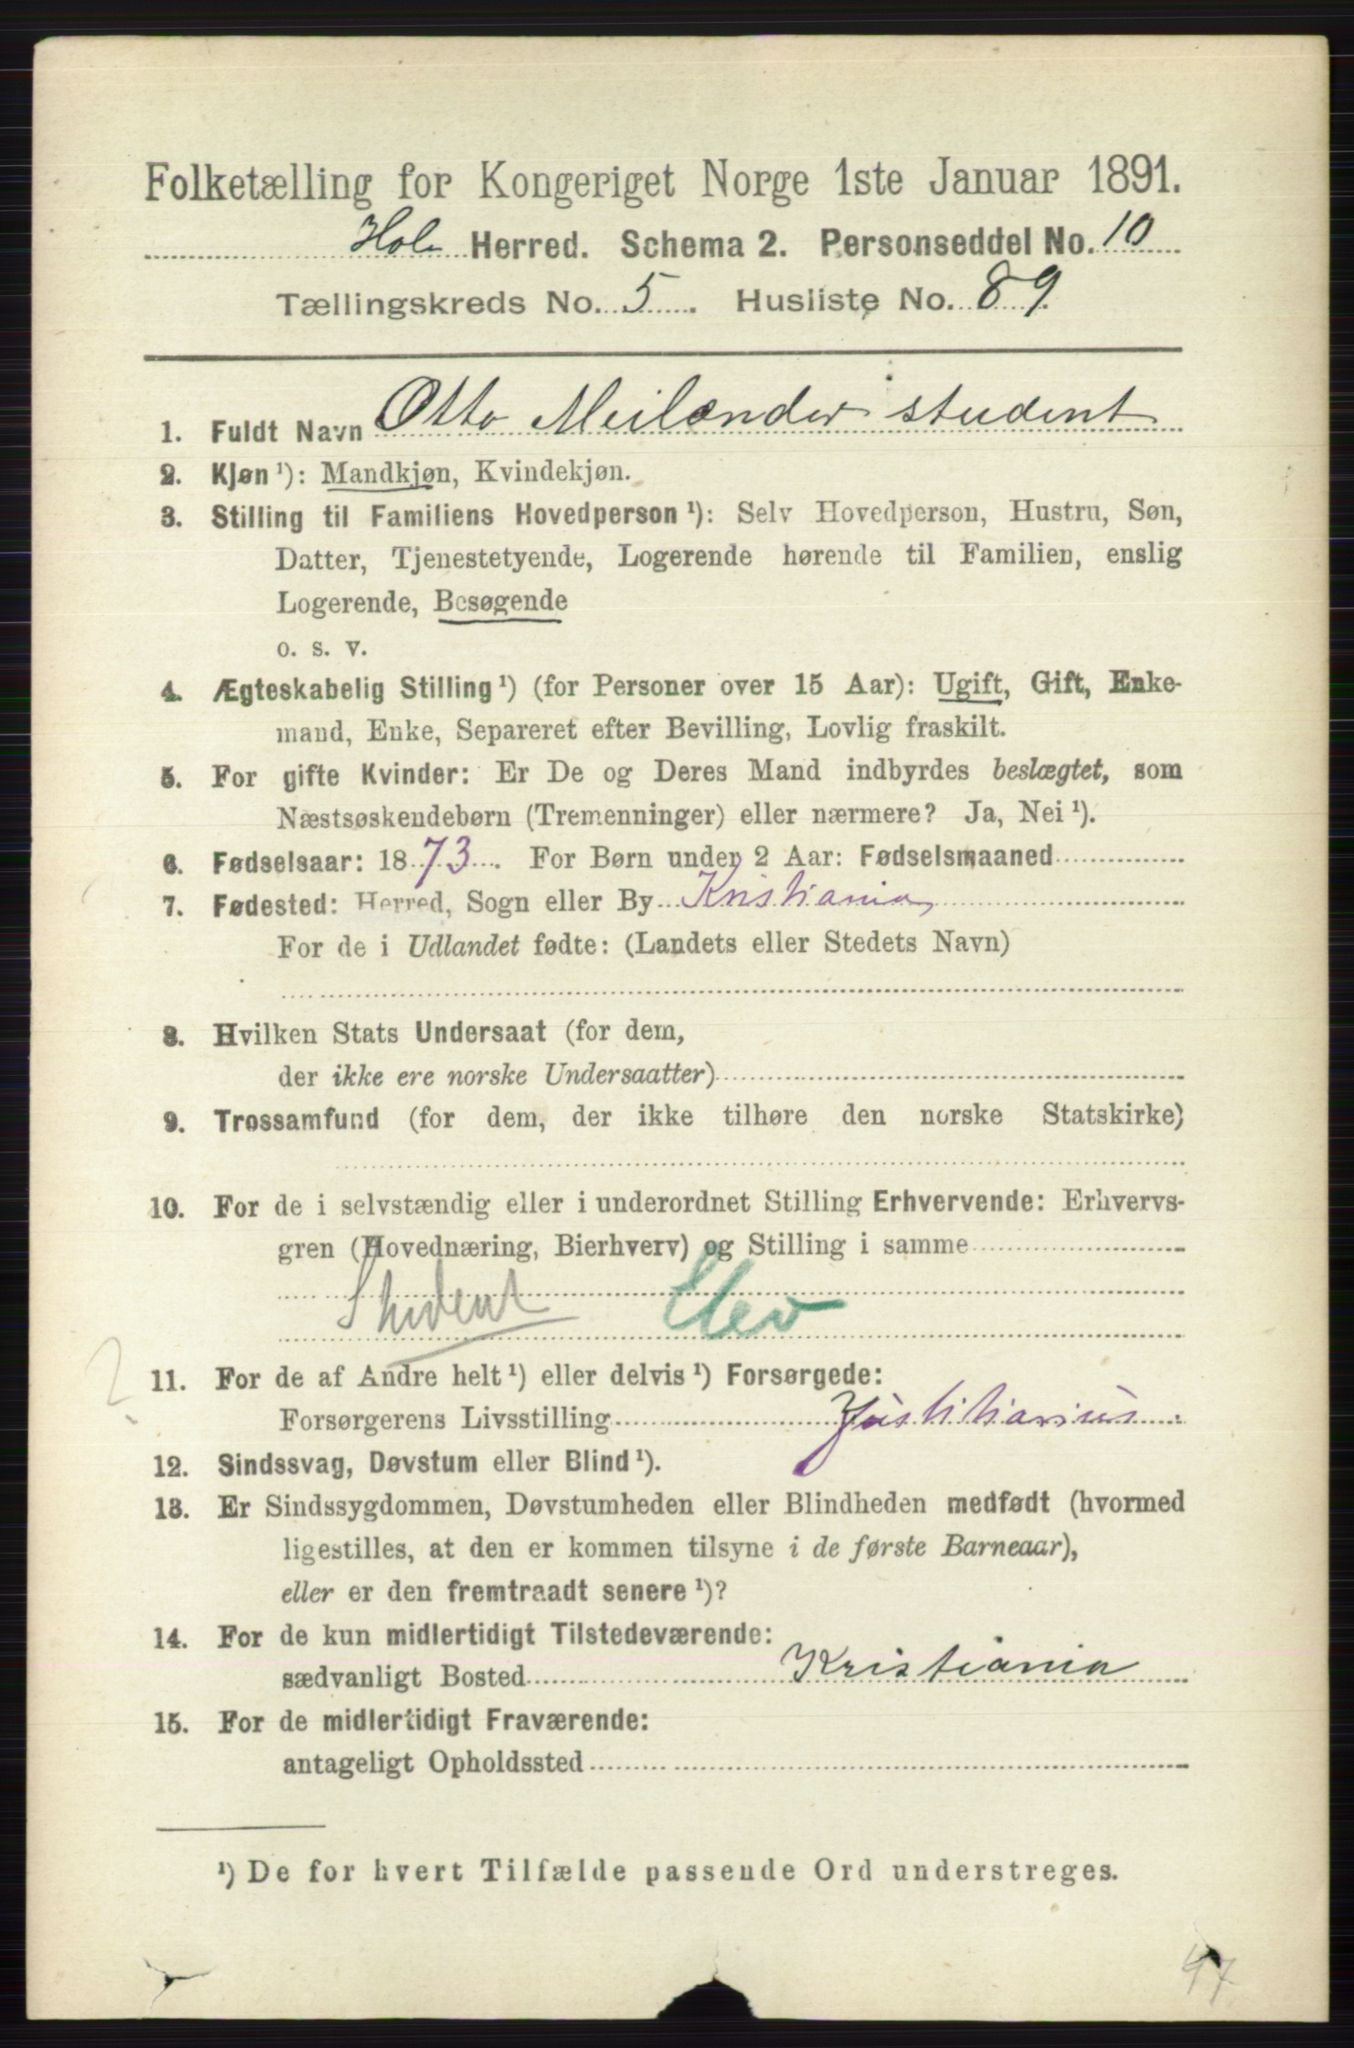 Folketælling for Kongeriget Norge 1ste Januar 1891.
Hole Herred. Schema 2. Personseddel No. 10
Tællingskreds No. 5. Husliste No. 89.
1. Fuldt Navn Otto Meilænder student
2. Kjøn¹): Mandkjøn, Kvindekjøn.
3. Stilling til Familiens Hovedperson¹): Selv Hovedperson, Hustru, Søn,
Datter, Tjenestetyende, Logerende hørende til Familien, enslig
Logerende, Besøgende
o. s. v.
4. Ægteskabelig Stilling¹) (for Personer over 15 Aar): Ugift, Gift, Enke-
mand, Enke, Separeret efter Bevilling, Lovlig fraskilt.
5. For gifte Kvinder: Er De og Deres Mand indbyrdes beslægtet, som
Næstsøskendebørn (Tremenninger) eller nærmere? Ja, Nei¹).
6. Fødselsaar: 1873. For Børn under 2 Aar: Fødselsmaaned
7. Fødested: Herred, Sogn eller By Kristiania
For de i Udlandet fødte: (Landets eller Stedets Navn)
8. Hvilken Stats Undersaat (for dem,
der ikke ere norske Undersaatter)
9. Trossamfund (for dem, der ikke tilhøre den norske Statskirke)
10. For de i selvstændig eller i underordnet Stilling Erhvervende: Erhvervs-
gren (Hovednæring, Bierhverv) og Stilling i samme
Student Elev
?
11. For de af Andre helt¹) eller delvis¹) Forsørgede:
Forsørgerens Livsstilling Justitiarius.
12. Sindssvag, Døvstum eller Blind¹).
13. Er Sindssygdommen, Døvstumheden eller Blindheden medfødt (hvormed
ligestilles, at den er kommen tilsyne i de første Barneaar),
eller er den fremtraadt senere¹)?
14. For de kun midlertidigt Tilstedeværende:
sædvanligt Bosted Kristiania
15. For de midlertidigt Fraværende:
antageligt Opholdssted
¹) De for hvert Tilfælde passende Ord understreges.
47